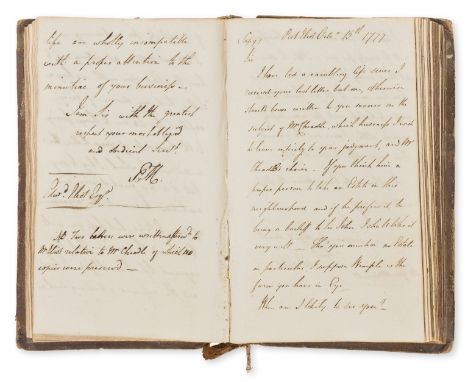 life are wholly incompatible
with a proper attention to the
minutiae of your business.
I am Sir with the greatest
respect your most oblig'd
and obedient Servt.
Edwd. Eliot Esqr.
NB Two Letters were written afterwd. to
Mr Eliot relative to Mr Cheadle of which no
copies were preserved
Copy
Port Eliot Octr. 15th 1777
Sir
I have led a rambling life since I
received your last letter but one, otherwise
should have written to you sooner on the
subject of Mr Cheadle, which business I wish
to leave entirely to your judgment, and Mr
Cheadle's choice. If you think him a
proper person to take an Estate in this
neighbourhood and if he prefers it to
being a Bailiff to Sir John I shall like it
very well. The open mention an Estate
in particular I suppose is the
farm you have in Eye.
When am I likely to see you?